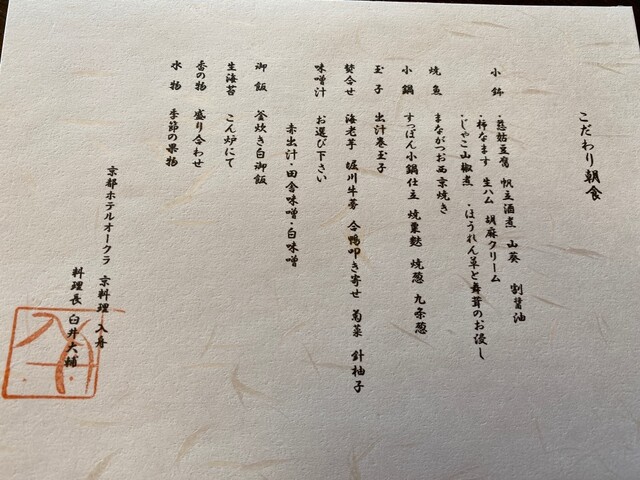 こだわり朝食
小鉢 ・慈姑豆腐 帆立酒煮 山葵 割醤油
・柿なます 生ハム 胡麻クリーム
・じゃこ山椒煮 ・ほうれん草と舞茸のお浸し
焼魚 まながつお西京焼き
小鍋 すっぽん小鍋仕立 焼粟麩 焼葱 九条葱
玉子 出汁巻玉子
焚合せ 海老芋 堀川牛蒡 合鴨叩き寄せ 菊菜 針柚子
味噌汁 お選び下さい
赤出汁・田舎味噌・白味噌
御飯 釜炊き白御飯
生海苔 こん炉にて
香の物 盛り合わせ
水物 季節の果物
京都ホテルオークラ 京料理 入舟
料理長 臼井大輔